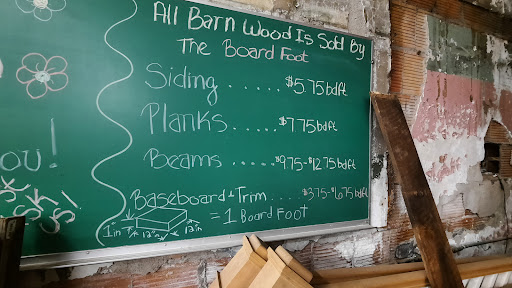 All Barn Wood Is Sold By
The Board Foot
Siding ..... $5.75 bdft
Planks .... $7.75 bdft
Beams ..... $9.75-$12.75 bdft
Baseboard & Trim .... $3.75-$6.75 bdft
1in 12in 12in = 1 Board Foot
OU!